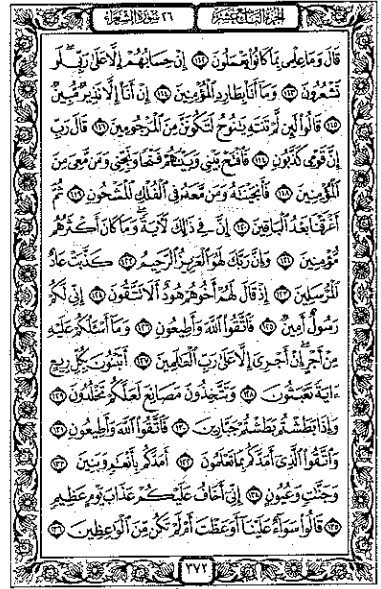 الجزء التاسع عشر ٢٦ سورة الشعراء
قَالَ وَمَا عِلْمِى بِمَا كَانُوا۟ يَعْمَلُونَ ١١٢ إِنْ حِسَابُهُمْ إِلَّا عَلَىٰ رَبِّى لَوْ
تَشْعُرُونَ ١١٣ وَمَآ أَنَا۠ بِطَارِدِ ٱلْمُؤْمِنِينَ ١١٤ إِنْ أَنَا۠ إِلَّا نَذِيرٌ مُّبِينٌ
١١٥ قَالُوا۟ لَئِن لَّمْ تَنتَهِ يَـٰنُوحُ لَتَكُونَنَّ مِنَ ٱلْمَرْجُومِينَ ١١٦ قَالَ رَبِّ
إِنَّ قَوْمِى كَذَّبُونِ ١١٧ فَٱفْتَحْ بَيْنِى وَبَيْنَهُمْ فَتْحًا وَنَجِّنِى وَمَن مَّعِىَ مِنَ
ٱلْمُؤْمِنِينَ ١١٨ فَأَنجَيْنَـٰهُ وَمَن مَّعَهُۥ فِى ٱلْفُلْكِ ٱلْمَشْحُونِ ١١٩ ثُمَّ
أَغْرَقْنَا بَعْدُ ٱلْبَاقِينَ ١٢٠ إِنَّ فِى ذَٰلِكَ لَـَٔايَةً وَمَا كَانَ أَكْثَرُهُم
مُّؤْمِنِينَ ١٢١ وَإِنَّ رَبَّكَ لَهُوَ ٱلْعَزِيزُ ٱلرَّحِيمُ ١٢٢ كَذَّبَتْ عَادٌ
ٱلْمُرْسَلِينَ ١٢٣ إِذْ قَالَ لَهُمْ أَخُوهُمْ هُودٌ أَلَا تَتَّقُونَ ١٢٤ إِنِّى لَكُمْ
رَسُولٌ أَمِينٌ ١٢٥ فَٱتَّقُوا۟ ٱللَّهَ وَأَطِيعُونِ ١٢٦ وَمَآ أَسْـَٔلُكُمْ عَلَيْهِ
مِنْ أَجْرٍ إِنْ أَجْرِىَ إِلَّا عَلَىٰ رَبِّ ٱلْعَـٰلَمِينَ ١٢٧ أَتَبْنُونَ بِكُلِّ رِيعٍ
ءَايَةً تَعْبَثُونَ ١٢٨ وَتَتَّخِذُونَ مَصَانِعَ لَعَلَّكُمْ تَخْلُدُونَ ١٢٩
وَإِذَا بَطَشْتُم بَطَشْتُمْ جَبَّارِينَ ١٣٠ فَٱتَّقُوا۟ ٱللَّهَ وَأَطِيعُونِ ١٣١
وَٱتَّقُوا۟ ٱلَّذِىٓ أَمَدَّكُم بِمَا تَعْلَمُونَ ١٣٢ أَمَدَّكُم بِأَنْعَـٰمٍ وَبَنِينَ ١٣٣
وَجَنَّـٰتٍ وَعُيُونٍ ١٣٤ إِنِّىٓ أَخَافُ عَلَيْكُمْ عَذَابَ يَوْمٍ عَظِيمٍ
١٣٥ قَالُوا۟ سَوَآءٌ عَلَيْنَآ أَوَعَظْتَ أَمْ لَمْ تَكُن مِّنَ ٱلْوَٰعِظِينَ ١٣٦
٣٧٢